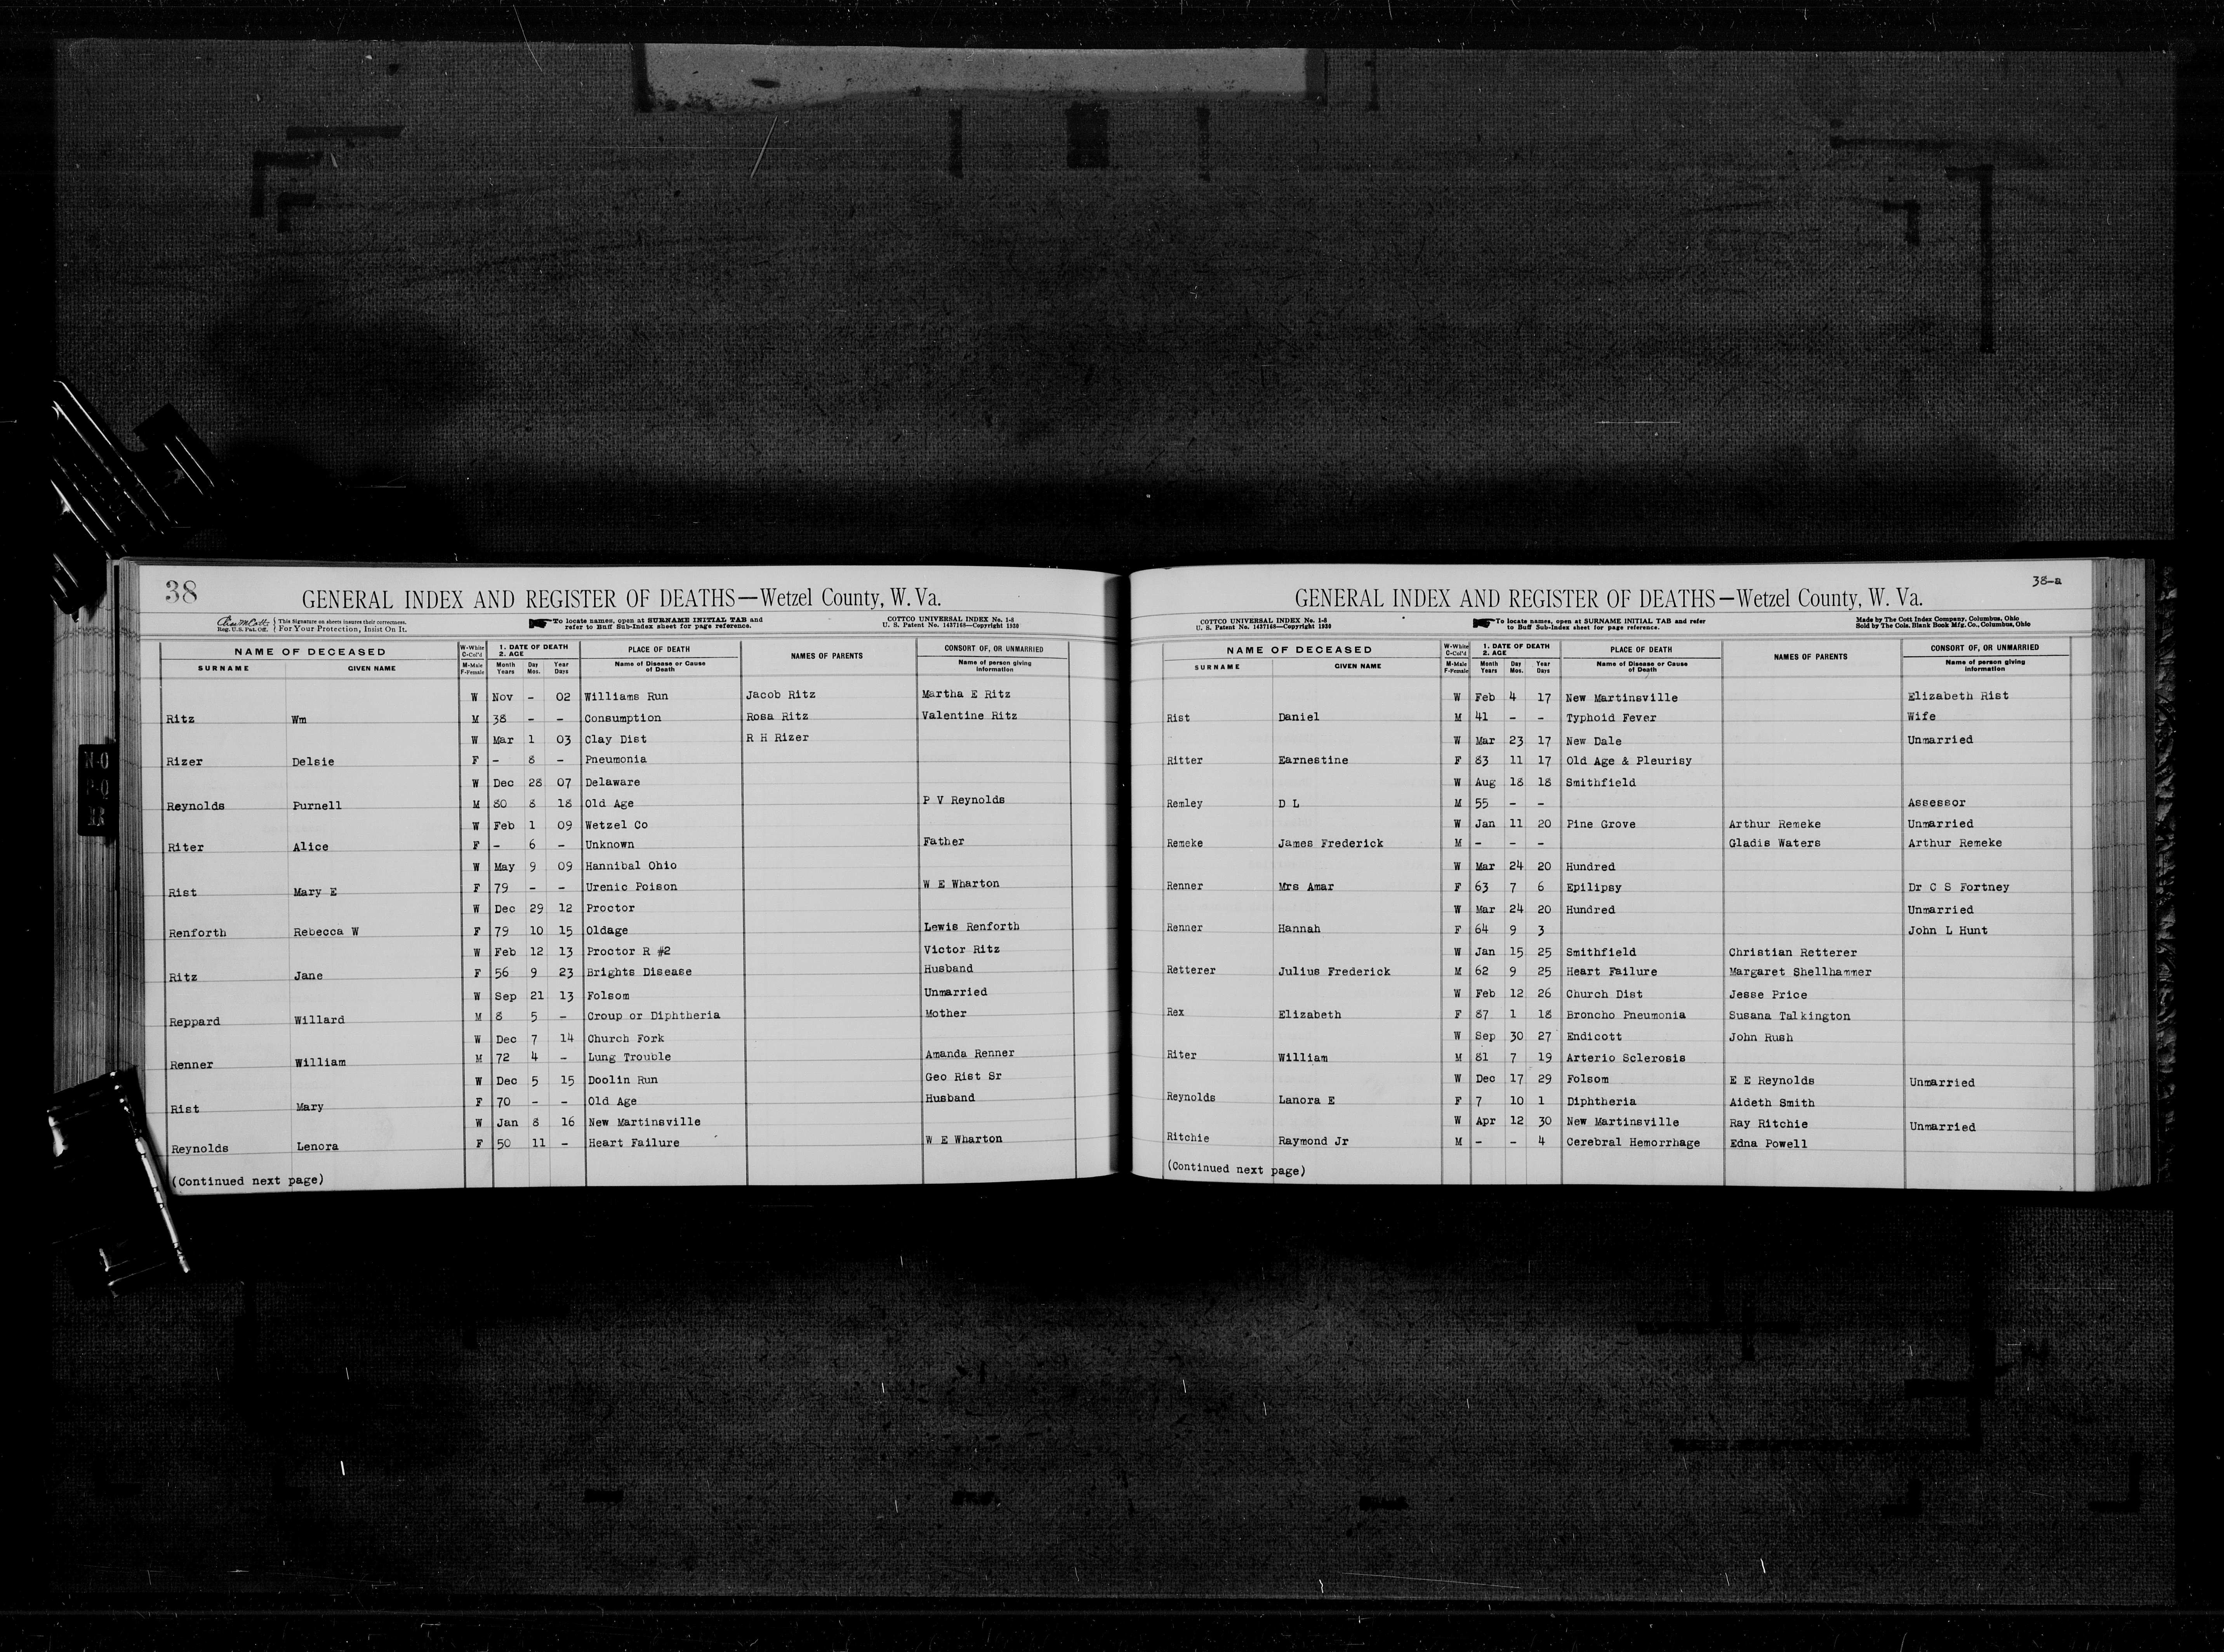 38
GENERAL INDEX AND REGISTER OF DEATHS—Wetzel County, W. Va.
Reg. U.S. Pat. Off. { This Signature on sheets insures their correctness. For Your Protection, Insist On It.
To locate names, open at SURNAME INITIAL TAB and refer to Buff Sub-Index sheet for page reference.
COTTCO UNIVERSAL INDEX No. 1-8
U. S. Patent No. 1437168—Copyright 1920
NAME OF DECEASED W-White C-Col'd 1. DATE OF DEATH 2. AGE PLACE OF DEATH NAMES OF PARENTS CONSORT OF, OR UNMARRIED
SURNAME GIVEN NAME M-Male F-Female Month Years Day Mos. Year Days Name of Disease or Cause of Death Name of person giving information
W Nov - 02 Williams Run Jacob Ritz Martha E Ritz
Ritz Wm M 38 - - Consumption Rosa Ritz Valentine Ritz
W Mar 1 03 Clay Dist R H Rizer
Rizer Delsie F - 8 - Pneumonia
W Dec 28 07 Delaware
Reynolds Purnell M 80 8 18 Old Age P V Reynolds
W Feb 1 09 Wetzel Co
Riter Alice F - 6 - Unknown Father
W May 9 09 Hannibal Ohio
Rist Mary E F 79 - - Urenic Poison W E Wharton
W Dec 29 12 Proctor
Renforth Rebecca W F 79 10 15 Oldage Lewis Renforth
W Feb 12 13 Proctor R #2 Victor Ritz
Ritz Jane F 56 9 23 Brights Disease Husband
W Sep 21 13 Folsom Unmarried
Reppard Willard M 8 5 - Croup or Diphtheria Mother
W Dec 7 14 Church Fork
Renner William M 72 4 - Lung Trouble Amanda Renner
W Dec 5 15 Doolin Run Geo Rist Sr
Rist Mary F 70 - - Old Age Husband
W Jan 8 16 New Martinsville
Reynolds Lenora F 50 11 - Heart Failure W E Wharton
(Continued next page)
38-a
GENERAL INDEX AND REGISTER OF DEATHS—Wetzel County, W. Va.
COTTCO UNIVERSAL INDEX No. 1-8
U. S. Patent No. 1437168—Copyright 1920
To locate names, open at SURNAME INITIAL TAB and refer to Buff Sub-Index sheet for page reference.
Made by The Cott Index Company, Columbus, Ohio
Sold by The Cols. Blank Book Mfg. Co., Columbus, Ohio
NAME OF DECEASED W-White C-Col'd 1. DATE OF DEATH 2. AGE PLACE OF DEATH NAMES OF PARENTS CONSORT OF, OR UNMARRIED
SURNAME GIVEN NAME M-Male F-Female Month Years Day Mos. Year Days Name of Disease or Cause of Death Name of person giving information
W Feb 4 17 New Martinsville Elizabeth Rist
Rist Daniel M 41 - - Typhoid Fever Wife
W Mar 23 17 New Dale Unmarried
Ritter Earnestine F 83 11 17 Old Age & Pleurisy
W Aug 18 18 Smithfield
Remley D L M 55 - - Assessor
W Jan 11 20 Pine Grove Arthur Remeke Unmarried
Remeke James Frederick M - - - Gladis Waters Arthur Remeke
W Mar 24 20 Hundred
Renner Mrs Amar F 63 7 6 Epilipsy Dr C S Fortney
W Mar 24 20 Hundred Unmarried
Renner Hannah F 64 9 3 John L Hunt
W Jan 15 25 Smithfield Christian Retterer
Retterer Julius Frederick M 62 9 25 Heart Failure Margaret Shellhammer
W Feb 12 26 Church Dist Jesse Price
Rex Elizabeth F 87 1 18 Broncho Pneumonia Susana Talkington
W Sep 30 27 Endicott John Rush
Riter William M 81 7 19 Arterio Sclerosis
W Dec 17 29 Folsom E E Reynolds Unmarried
Reynolds Lanora E F 7 10 1 Diphtheria Aideth Smith
W Apr 12 30 New Martinsville Ray Ritchie Unmarried
Ritchie Raymond Jr M - - 4 Cerebral Hemorrhage Edna Powell
(Continued next page)